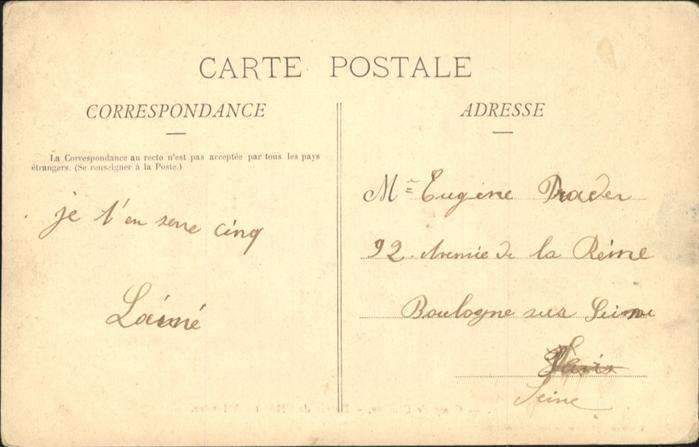 CARTE POSTALE
CORRESPONDANCE
La Correspondance au recto n'est pas acceptée par tous les pays
étrangers. (Se renseigner à la Poste.)
je t'en serre cinq
Laîné
ADRESSE
Mr Eugène
92 Avenue de la Reine
Boulogne sur Seine
Paris
Seine